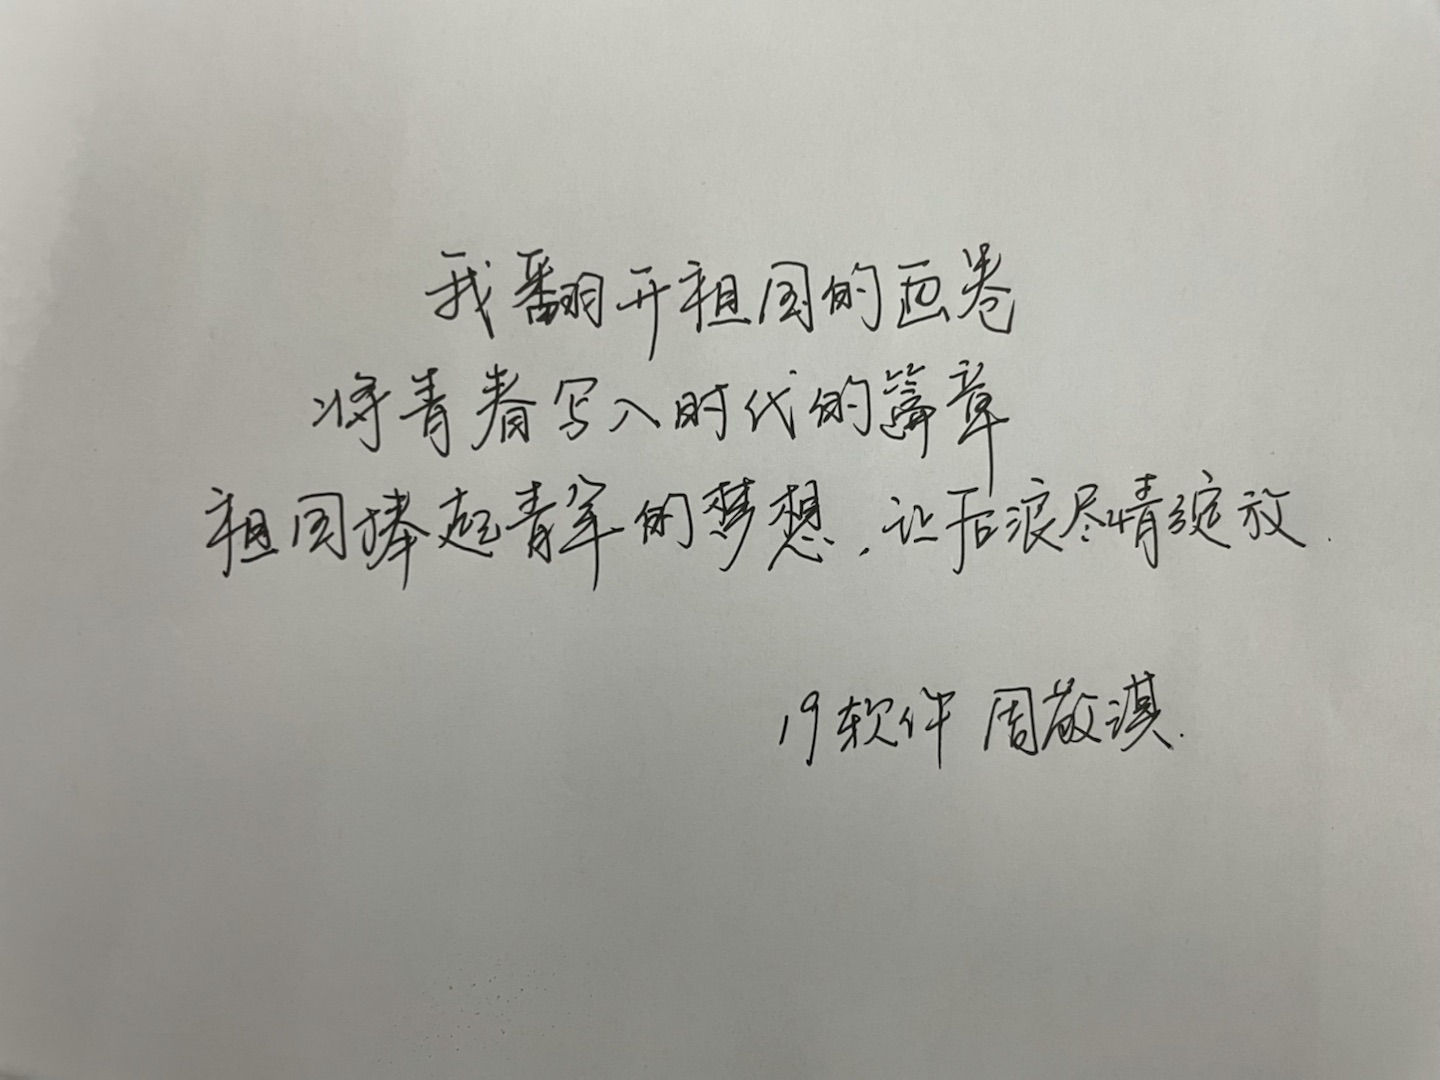 我翻开祖国的画卷
将青春写入时代的篇章
祖国捧起青年的梦想,让后浪尽情绽放.
19软件 周敬淇.